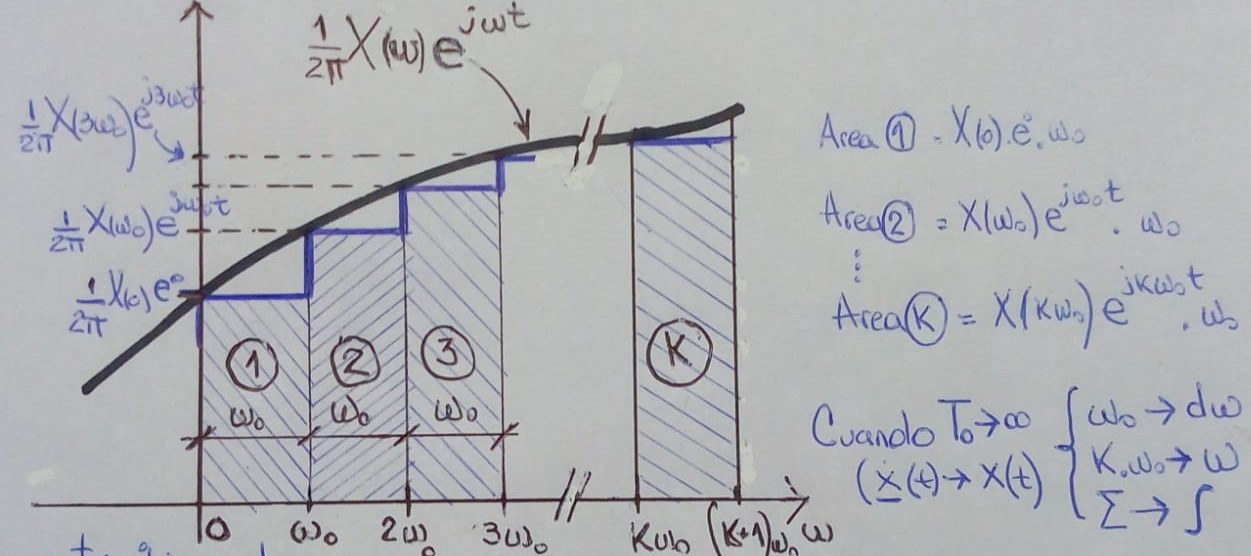 1/2π X(ω) e^jωt
1/2π X(3ω₀) e^j3ω₀t
1/2π X(ω₀) e^jω₀t
1/2π X(0) e⁰
① ② ③ Ⓚ
ω₀ ω₀ ω₀
0 ω₀ 2ω₀ 3ω₀ Kω₀ (K+1)ω₀ ω
Area ① = X(0).e⁰.ω₀
Area ② = X(ω₀) e^jω₀t . ω₀
⋮
Area Ⓚ = X(Kω₀) e^jKω₀t . ω₀
Cuando T₀→∞ { ω₀ → dω
(x(t) → x(t) K.ω₀ → ω
Σ → ∫